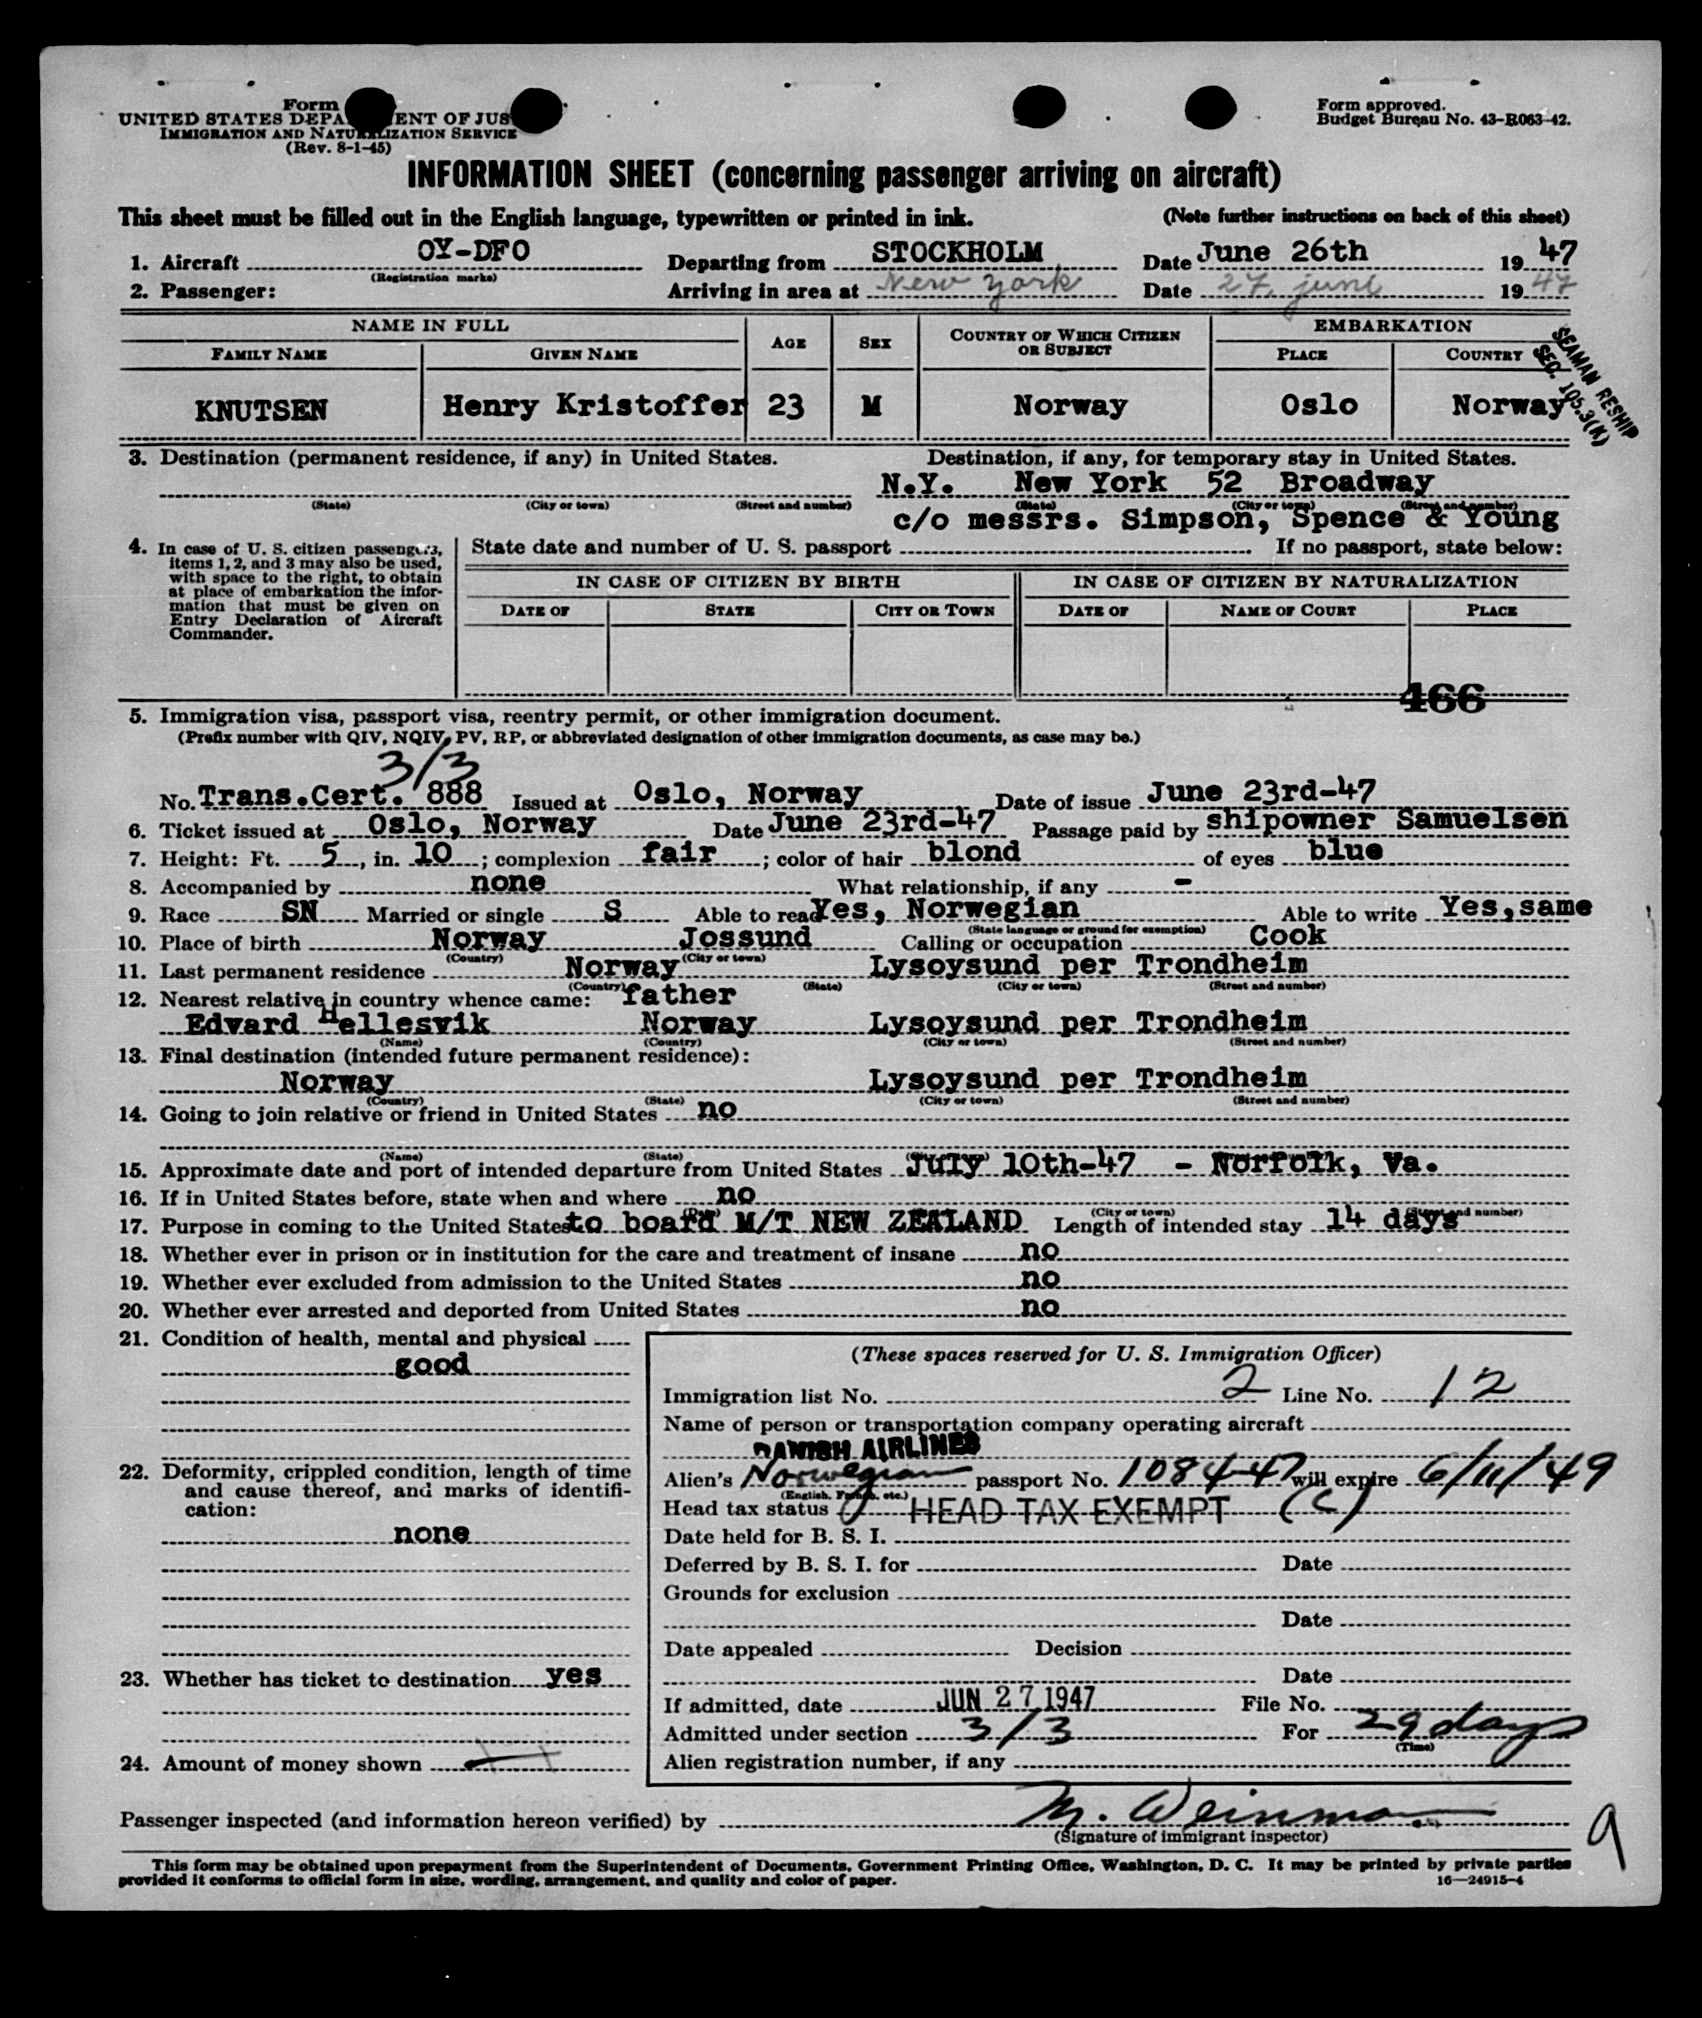 Form
UNITED STATES DEPA ENT OF JUS
IMMIGRATION AND NATURALIZATION SERVICE
(Rev. 8-1-45)
Form approved.
Budget Bureau No. 43-R063-42.
INFORMATION SHEET (concerning passenger arriving on aircraft)
This sheet must be filled out in the English language, typewritten or printed in ink. (Note further instructions on back of this sheet)
1. Aircraft OY-DFO Departing from STOCKHOLM Date June 26th 19 47
(Registration marks)
2. Passenger: Arriving in area at New York Date 27 june 19 47
NAME IN FULL AGE SEX COUNTRY OF WHICH CITIZEN OR SUBJECT EMBARKATION
FAMILY NAME GIVEN NAME PLACE COUNTRY
SEAMAN RESHIP
SEC. 105.3(K)
KNUTSEN Henry Kristoffer 23 M Norway Oslo Norway
3. Destination (permanent residence, if any) in United States. Destination, if any, for temporary stay in United States.
N.Y. New York 52 Broadway
(State) (City or town) (Street and number) (State) (City or town) (Street and number)
c/o messrs. Simpson, Spence & Young
4. In case of U. S. citizen passengers, items 1, 2, and 3 may also be used, with space to the right, to obtain at place of embarkation the information that must be given on Entry Declaration of Aircraft Commander.
State date and number of U. S. passport If no passport, state below:
IN CASE OF CITIZEN BY BIRTH IN CASE OF CITIZEN BY NATURALIZATION
DATE OF STATE CITY OR TOWN DATE OF NAME OF COURT PLACE
466
5. Immigration visa, passport visa, reentry permit, or other immigration document.
(Prefix number with QIV, NQIV, PV, RP, or abbreviated designation of other immigration documents, as case may be.)
3/3
No. Trans.Cert. 888 Issued at Oslo, Norway Date of issue June 23rd-47
6. Ticket issued at Oslo, Norway Date June 23rd-47 Passage paid by shipowner Samuelsen
7. Height: Ft. 5, in. 10; complexion fair; color of hair blond of eyes blue
8. Accompanied by none What relationship, if any -
9. Race SN Married or single S Able to read Yes, Norwegian Able to write Yes,same
(State language or ground for exemption)
10. Place of birth Norway Jossund Calling or occupation Cook
(Country) (City or town)
11. Last permanent residence Norway Lysoysund per Trondheim
(Country) (State) (City or town) (Street and number)
12. Nearest relative in country whence came: father
Edvard Hellesvik Norway Lysoysund per Trondheim
(Name) (Country) (City or town) (Street and number)
13. Final destination (intended future permanent residence):
Norway Lysoysund per Trondheim
(Country) (State) (City or town) (Street and number)
14. Going to join relative or friend in United States no
(Name) (State)
15. Approximate date and port of intended departure from United States July 10th-47 - Norfolk, Va.
16. If in United States before, state when and where no
(City or town) (Street and number)
17. Purpose in coming to the United States to board M/T NEW ZEALAND Length of intended stay 14 days
18. Whether ever in prison or in institution for the care and treatment of insane no
19. Whether ever excluded from admission to the United States no
20. Whether ever arrested and deported from United States no
21. Condition of health, mental and physical
good
22. Deformity, crippled condition, length of time and cause thereof, and marks of identification:
none
23. Whether has ticket to destination yes
24. Amount of money shown
(These spaces reserved for U. S. Immigration Officer)
Immigration list No. 2 Line No. 12
Name of person or transportation company operating aircraft
DANISH AIRLINES
Alien's Norwegian passport No. 1084-47 will expire 6/11/49
(English, French, etc.)
Head tax status HEAD TAX EXEMPT (c)
Date held for B. S. I.
Deferred by B. S. I. for Date
Grounds for exclusion
Date
Date appealed Decision
Date
If admitted, date JUN 27 1947 File No.
Admitted under section 3/3 For 29 days
(Time)
Alien registration number, if any
Passenger inspected (and information hereon verified) by M. Weinman
(Signature of immigrant inspector)
9
This form may be obtained upon prepayment from the Superintendent of Documents, Government Printing Office, Washington, D. C. It may be printed by private parties
provided it conforms to official form in size, wording, arrangement, and quality and color of paper. 16—24915-4